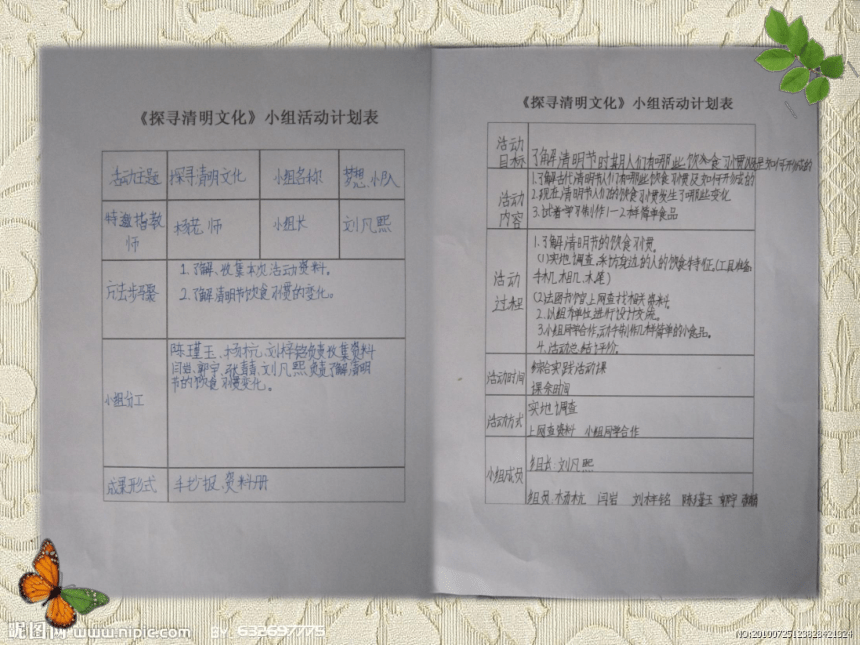 《探寻清明文化》小组活动计划表
活动主题 探寻清明文化 小组名称 梦想小队
特邀指教师 杨老师 小组长 刘凡熙
方法步骤
1.了解、收集本次活动资料。
2.了解清明节饮食习惯的变化。
小组分工
陈瑾玉、杨杭、刘梓铭负责收集资料
闫岩、郭宁、张 刘凡熙负责了解清明
节的饮食习惯变化。
成果形式 手抄报、资料册
《探寻清明文化》小组活动计划表
活动目标 了解清明节时期人们有哪些饮食习惯 如何开始的
活动内容
1.了解古代清明节人们有哪些饮食习惯及如何开始的
2.现在清明节人们的饮食习惯发生了哪些变化
3.试着学习制作1—2样简单食品
活动过程
1.了解清明节的饮食习惯。
(1)实地调查,采访身边的人的饮食特征。(工具准备:
手机、相机、 )
(2)去图书馆上网查找相关资料。
2.以组为单位进行设计交流。
3.小组同学合作,动手制作几样简单的小食品。
4.活动总结与评价。
活动时间 综合实践活动课
课余时间
活动方式 实地调查
上网查资料 小组同学合作
小组成员 组长:刘凡熙
组员:杨杭 闫岩 刘梓铭 陈瑾玉 郭宁
昵图网 www.nipic.com BY 632697775
NO:20100725123828421324